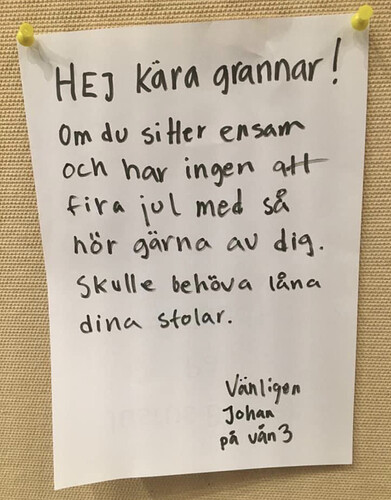 HEJ kära grannar!
Om du sitter ensam
och har ingen att
fira jul med så
hör gärna av dig.
Skulle behöva låna
dina stolar.
Vänligen
Johan
på vån 3